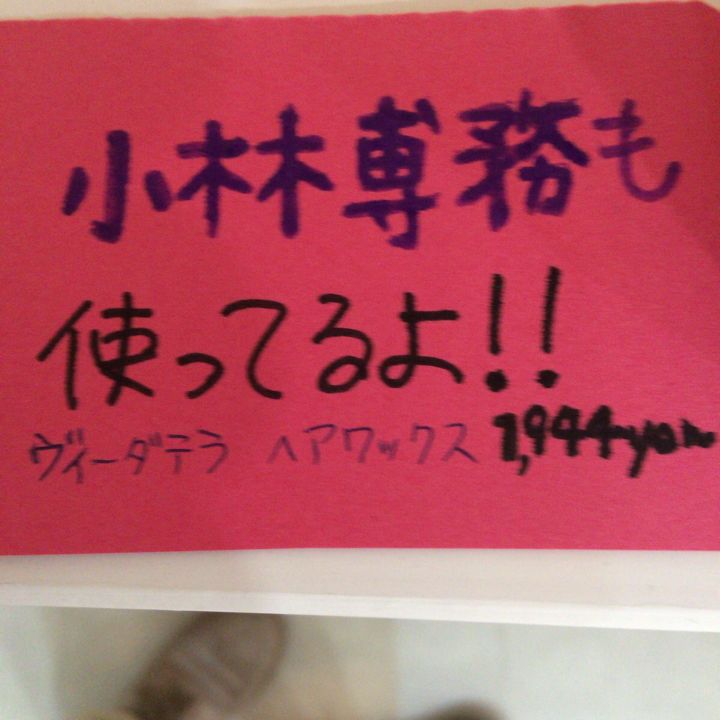 小林専務も
使ってるよ!!
ヴィーダテラ ヘアワックス 1,944yen